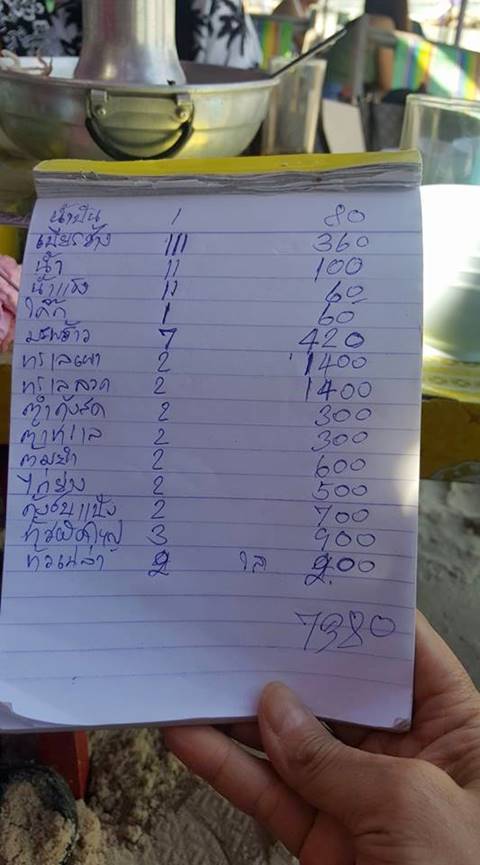 น้ำปั่น 1 80
เบียร์ช้าง 111 360
น้ำ 11 100
น้ำแข็ง 11 60
โค๊ก 1 60
มะพร้าว 7 420
ทะเลเผา 2 1400
ทะเลลวก 2 1400
ตำกุ้งสด 2 300
ตำทะเล 2 300
ต้มยำ 2 600
ไก่ย่าง 2 500
กุ้งชุบแป้ง 2 700
ข้าวผัดใหญ่ 3 900
ข้าวเปล่า 2 ใส่ 200
7380